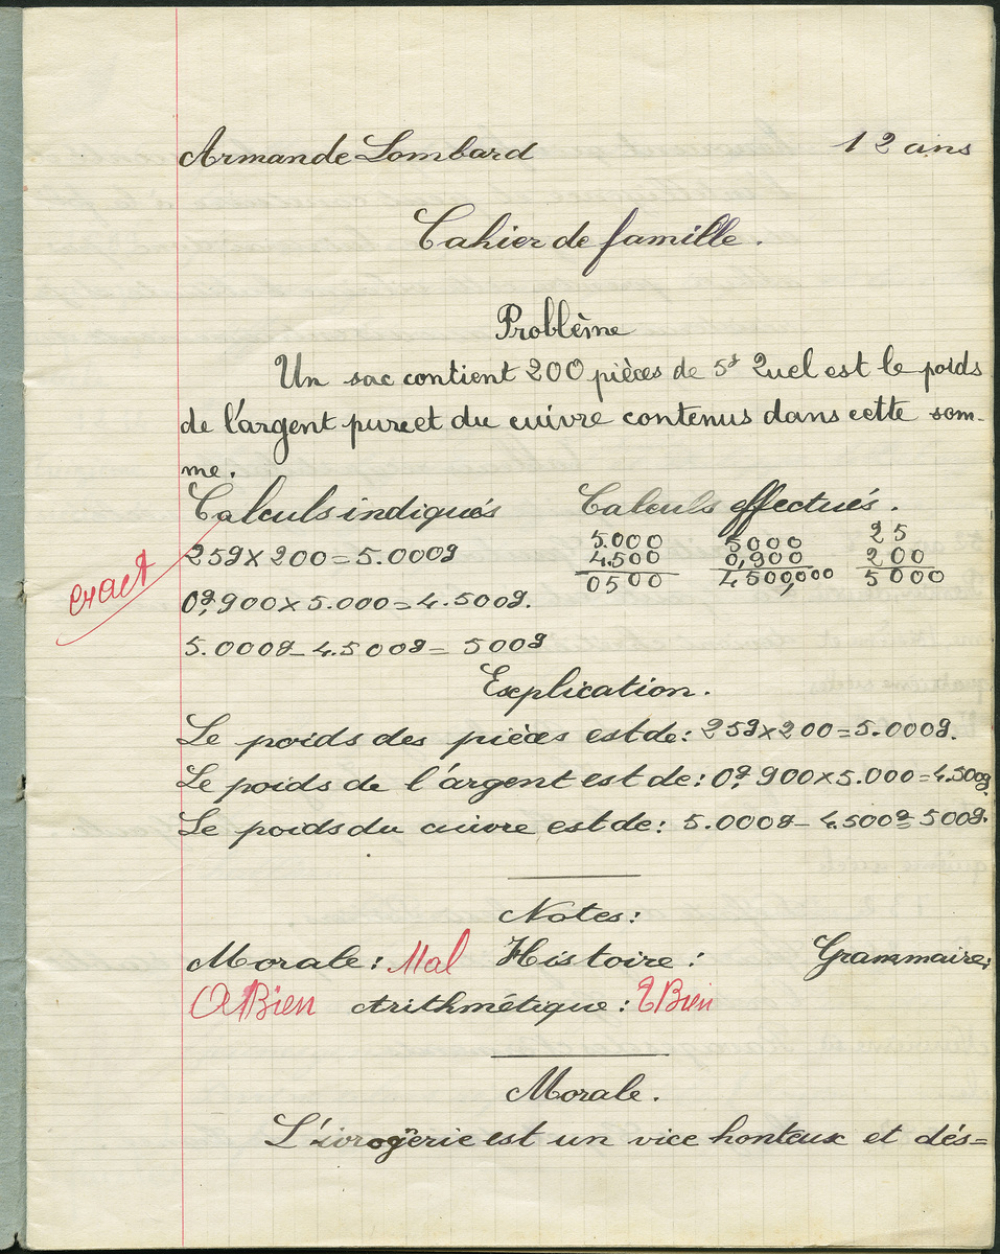 Armande Lombard 12 ans
Cahier de famille.
Problème
Un sac contient 200 pièces de 5f Quel est le poids
de l'argent pur et du cuivre contenus dans cette som-
me.
Calculs indiqués Calculs effectués.
25g x 200 = 5.000g
5.000 5000 25
4.500 0,900 200
0500 4500,000 5000
exact
0g,900 x 5.000 = 4.500g.
5.000g - 4.500g = 500g
Explication.
Le poids des pièces est de: 25g x 200 = 5.000g.
Le poids de l'argent est de: 0g,900 x 5.000 = 4.500g.
Le poids du cuivre est de: 5.000g - 4.500g = 500g.
Notes:
Morale: Mal Histoire: Grammaire:
ABien Arithmétique: TBien
Morale.
L'ivrogerie est un vice honteux et dés=